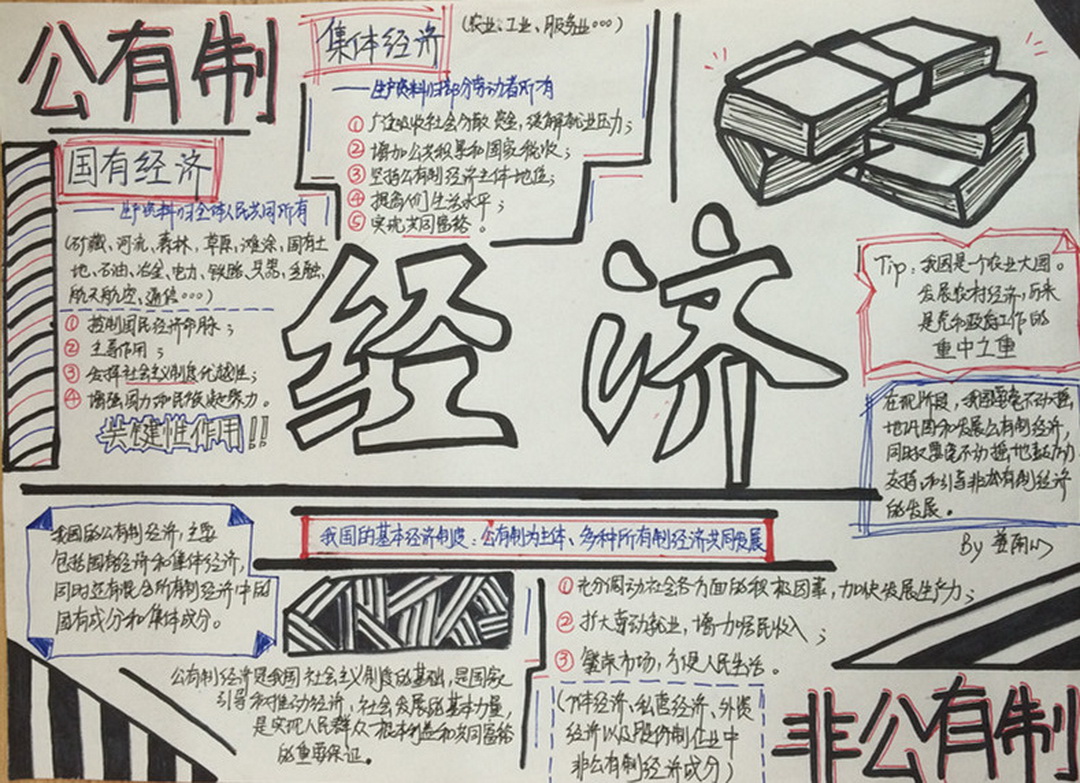 公有制
集体经济
(农业、工业、服务业。。。)
——生产资料归部分劳动者所有
① 广泛吸收社会分散资金，缓解就业压力；
② 增加公共积累和国家税收；
③ 坚持公有制经济主体地位；
④ 提高人们生活水平；
⑤ 实现共同富裕。
国有经济
——生产资料归全体人民共同所有
(矿藏、河流、森林、草原、滩涂、国有土
地、石油、冶金、电力、铁路、兵器、金融、
航天航空、通信。。。)
① 控制国民经济命脉；
② 主导作用；
③ 发挥社会主义制度优越性；
④ 增强国力和民族凝聚力。
关键性作用!!
经济
Tip：我国是一个农业大国。
发展农村经济，历来
是党和政府工作的
重中之重
在现阶段，我国要毫不动摇
地巩固和发展公有制经济，
同时又要毫不动摇地鼓励
支持和引导非公有制经济
的发展。
By
我国的基本经济制度：公有制为主体、多种所有制经济共同发展
我国的公有制经济，主要
包括国有经济和集体经济，
同时还有混合所有制经济中的
国有成分和集体成分。
① 充分调动社会各方面的积极因素，加快发展生产力；
② 扩大劳动就业，增加居民收入；
③ 繁荣市场，方便人民生活。
公有制经济是我国社会主义制度的基础，是国家
引导和推动经济、社会发展的基本力量，
是实现人民群众根本利益和共同富裕
的重要保证。
(个体经济、私营经济、外资
经济以及股份制企业中
非公有制经济成分)
非公有制